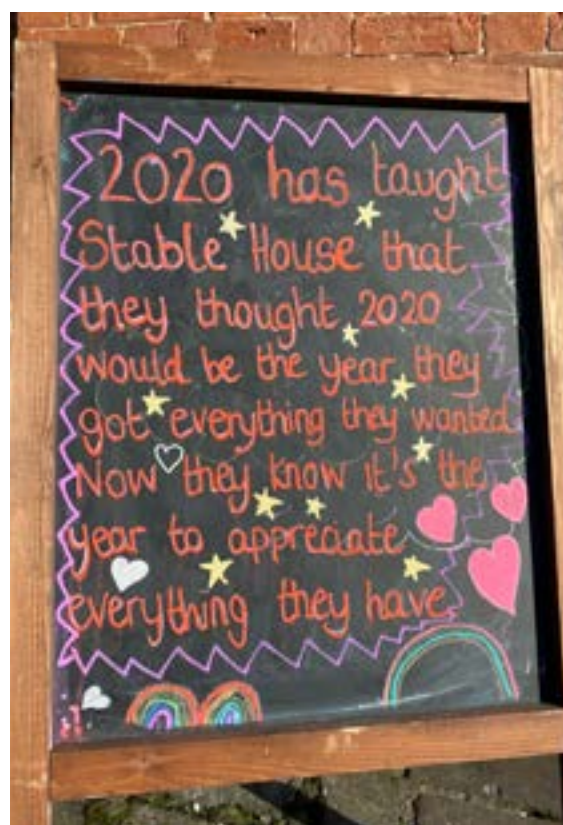 2020 has taught
Stable House that
they thought 2020
would be the year they
got everything they wanted
Now they know it's the
year to appreciate
everything they have